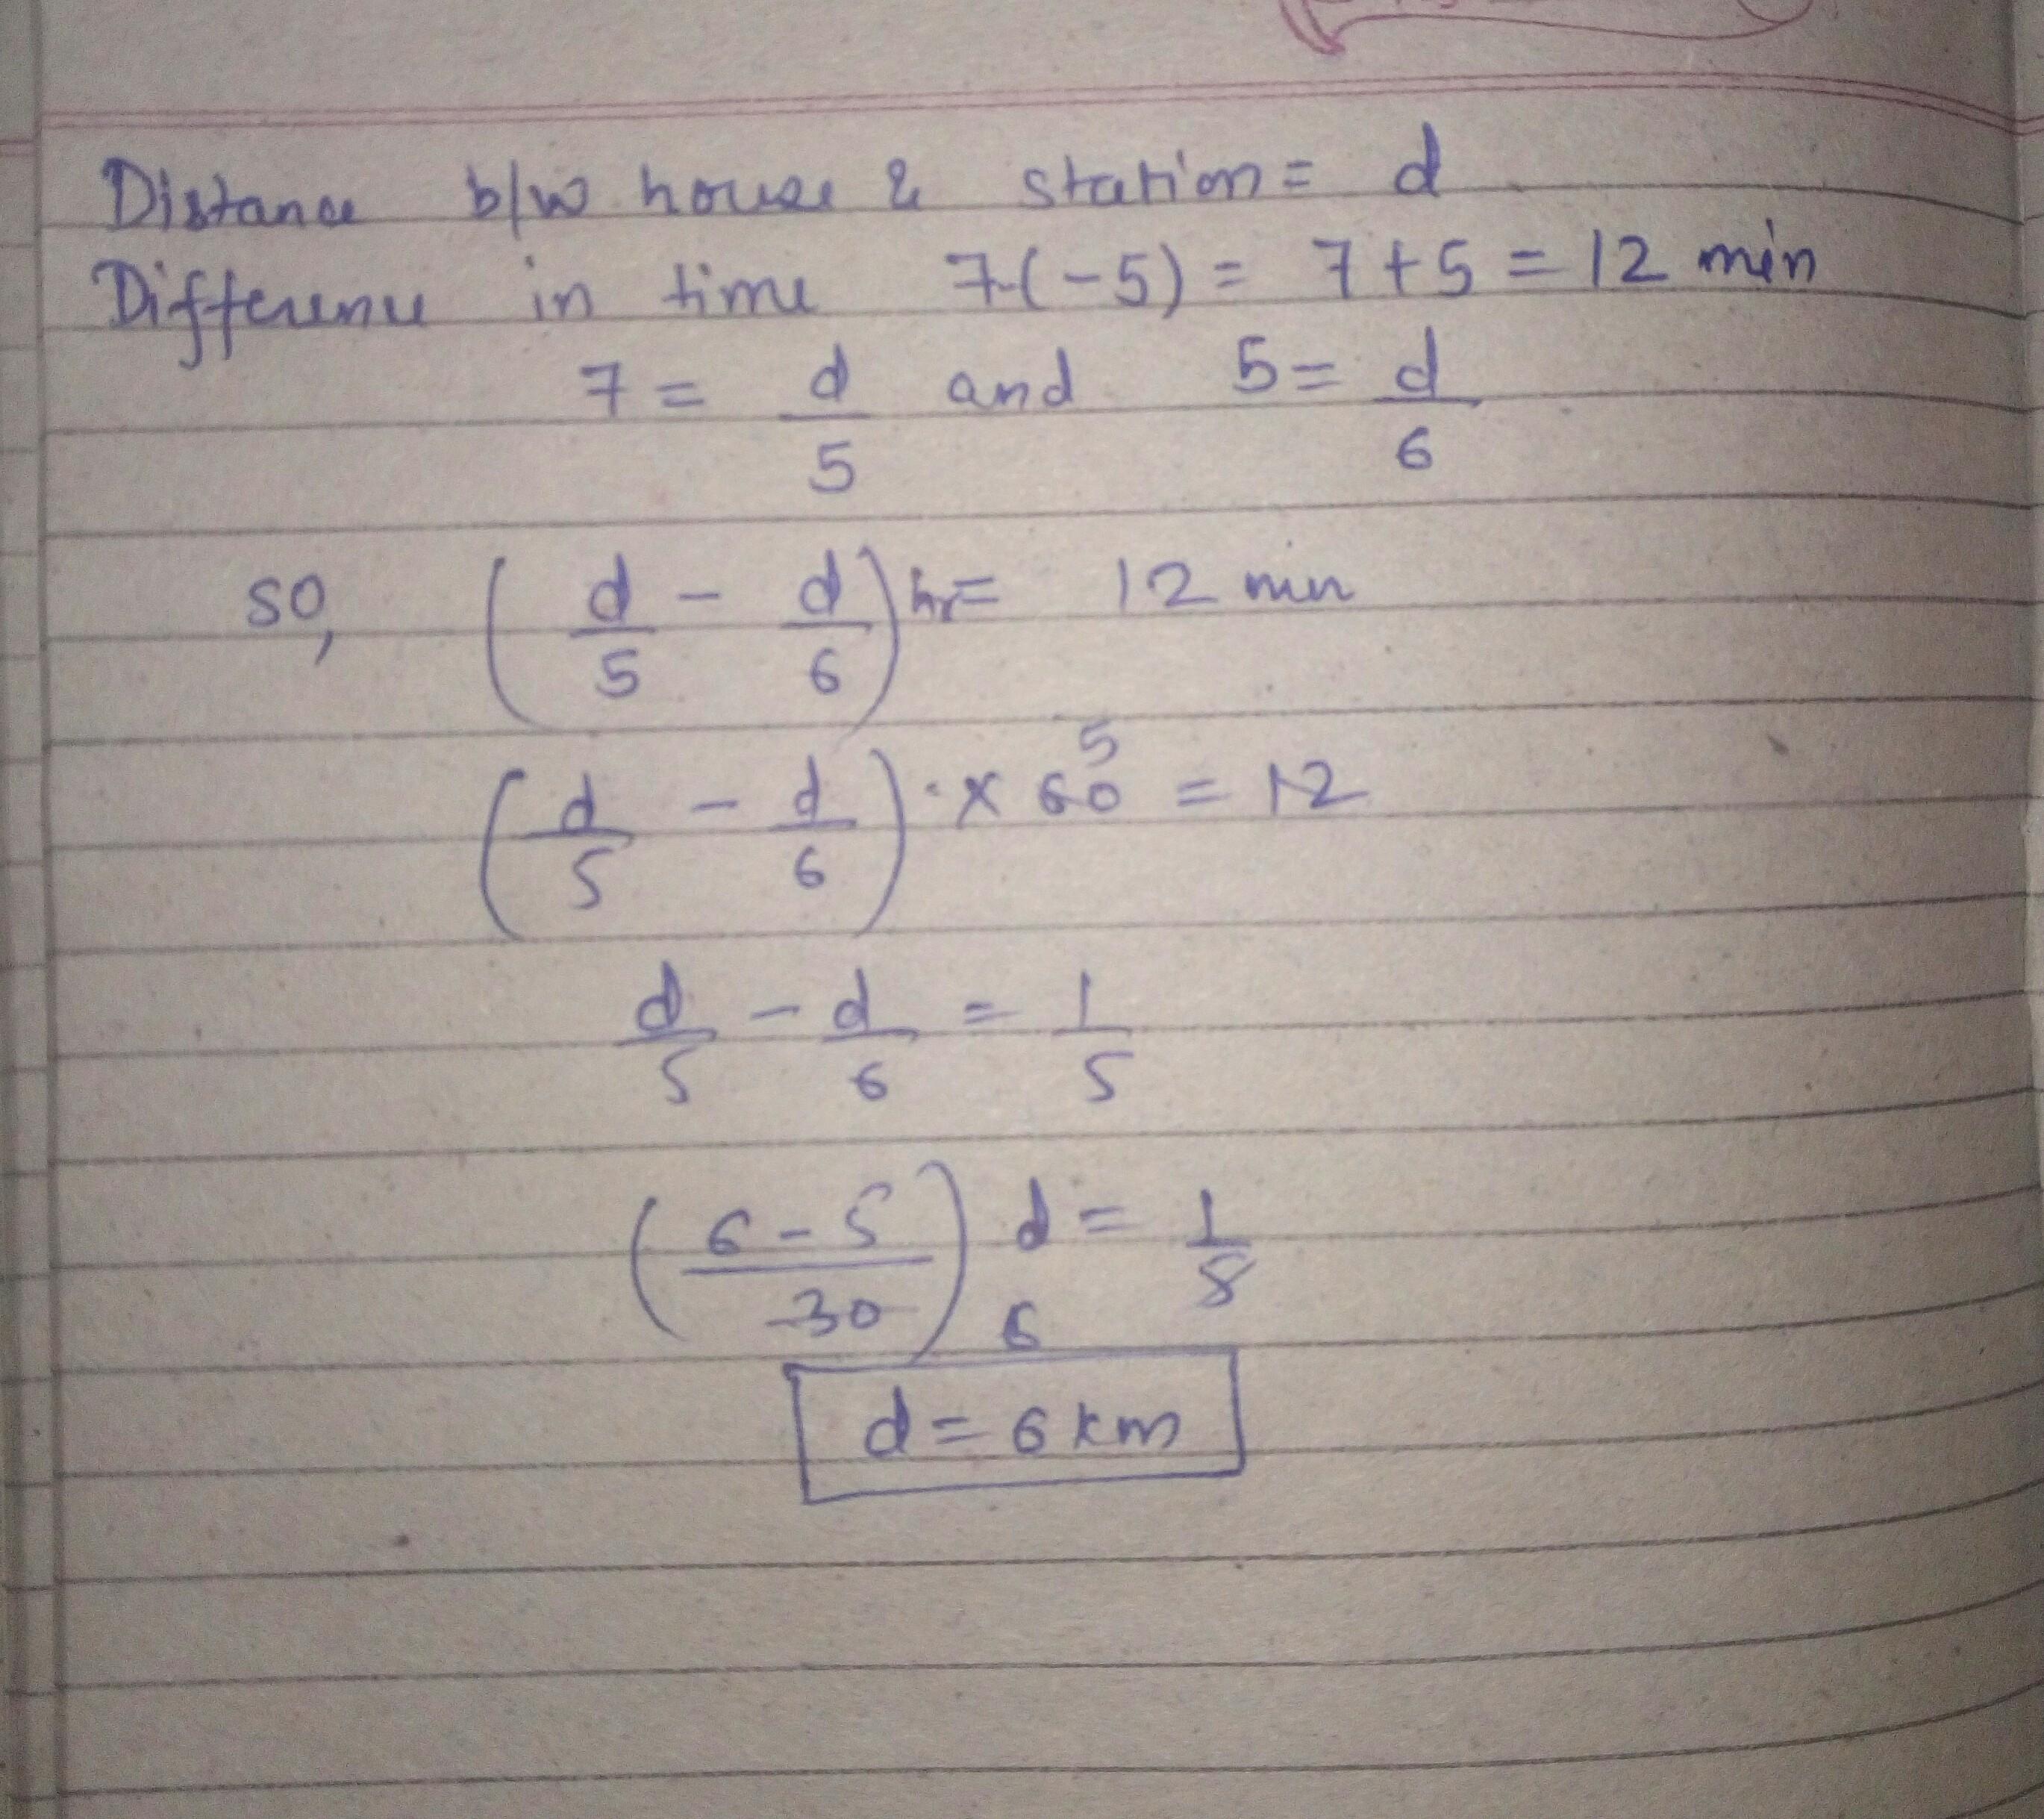 Distance b/w house & station = d
Difference in time 7-(-5) = 7+5 = 12 min
7 = d/5 and 5 = d/6
so, (d/5 - d/6) hr = 12 min
(d/5 - d/6) × 60 5 = 12
d/5 - d/6 = 1/5
((6-5)/30) d = 1/5
6
d = 6 km